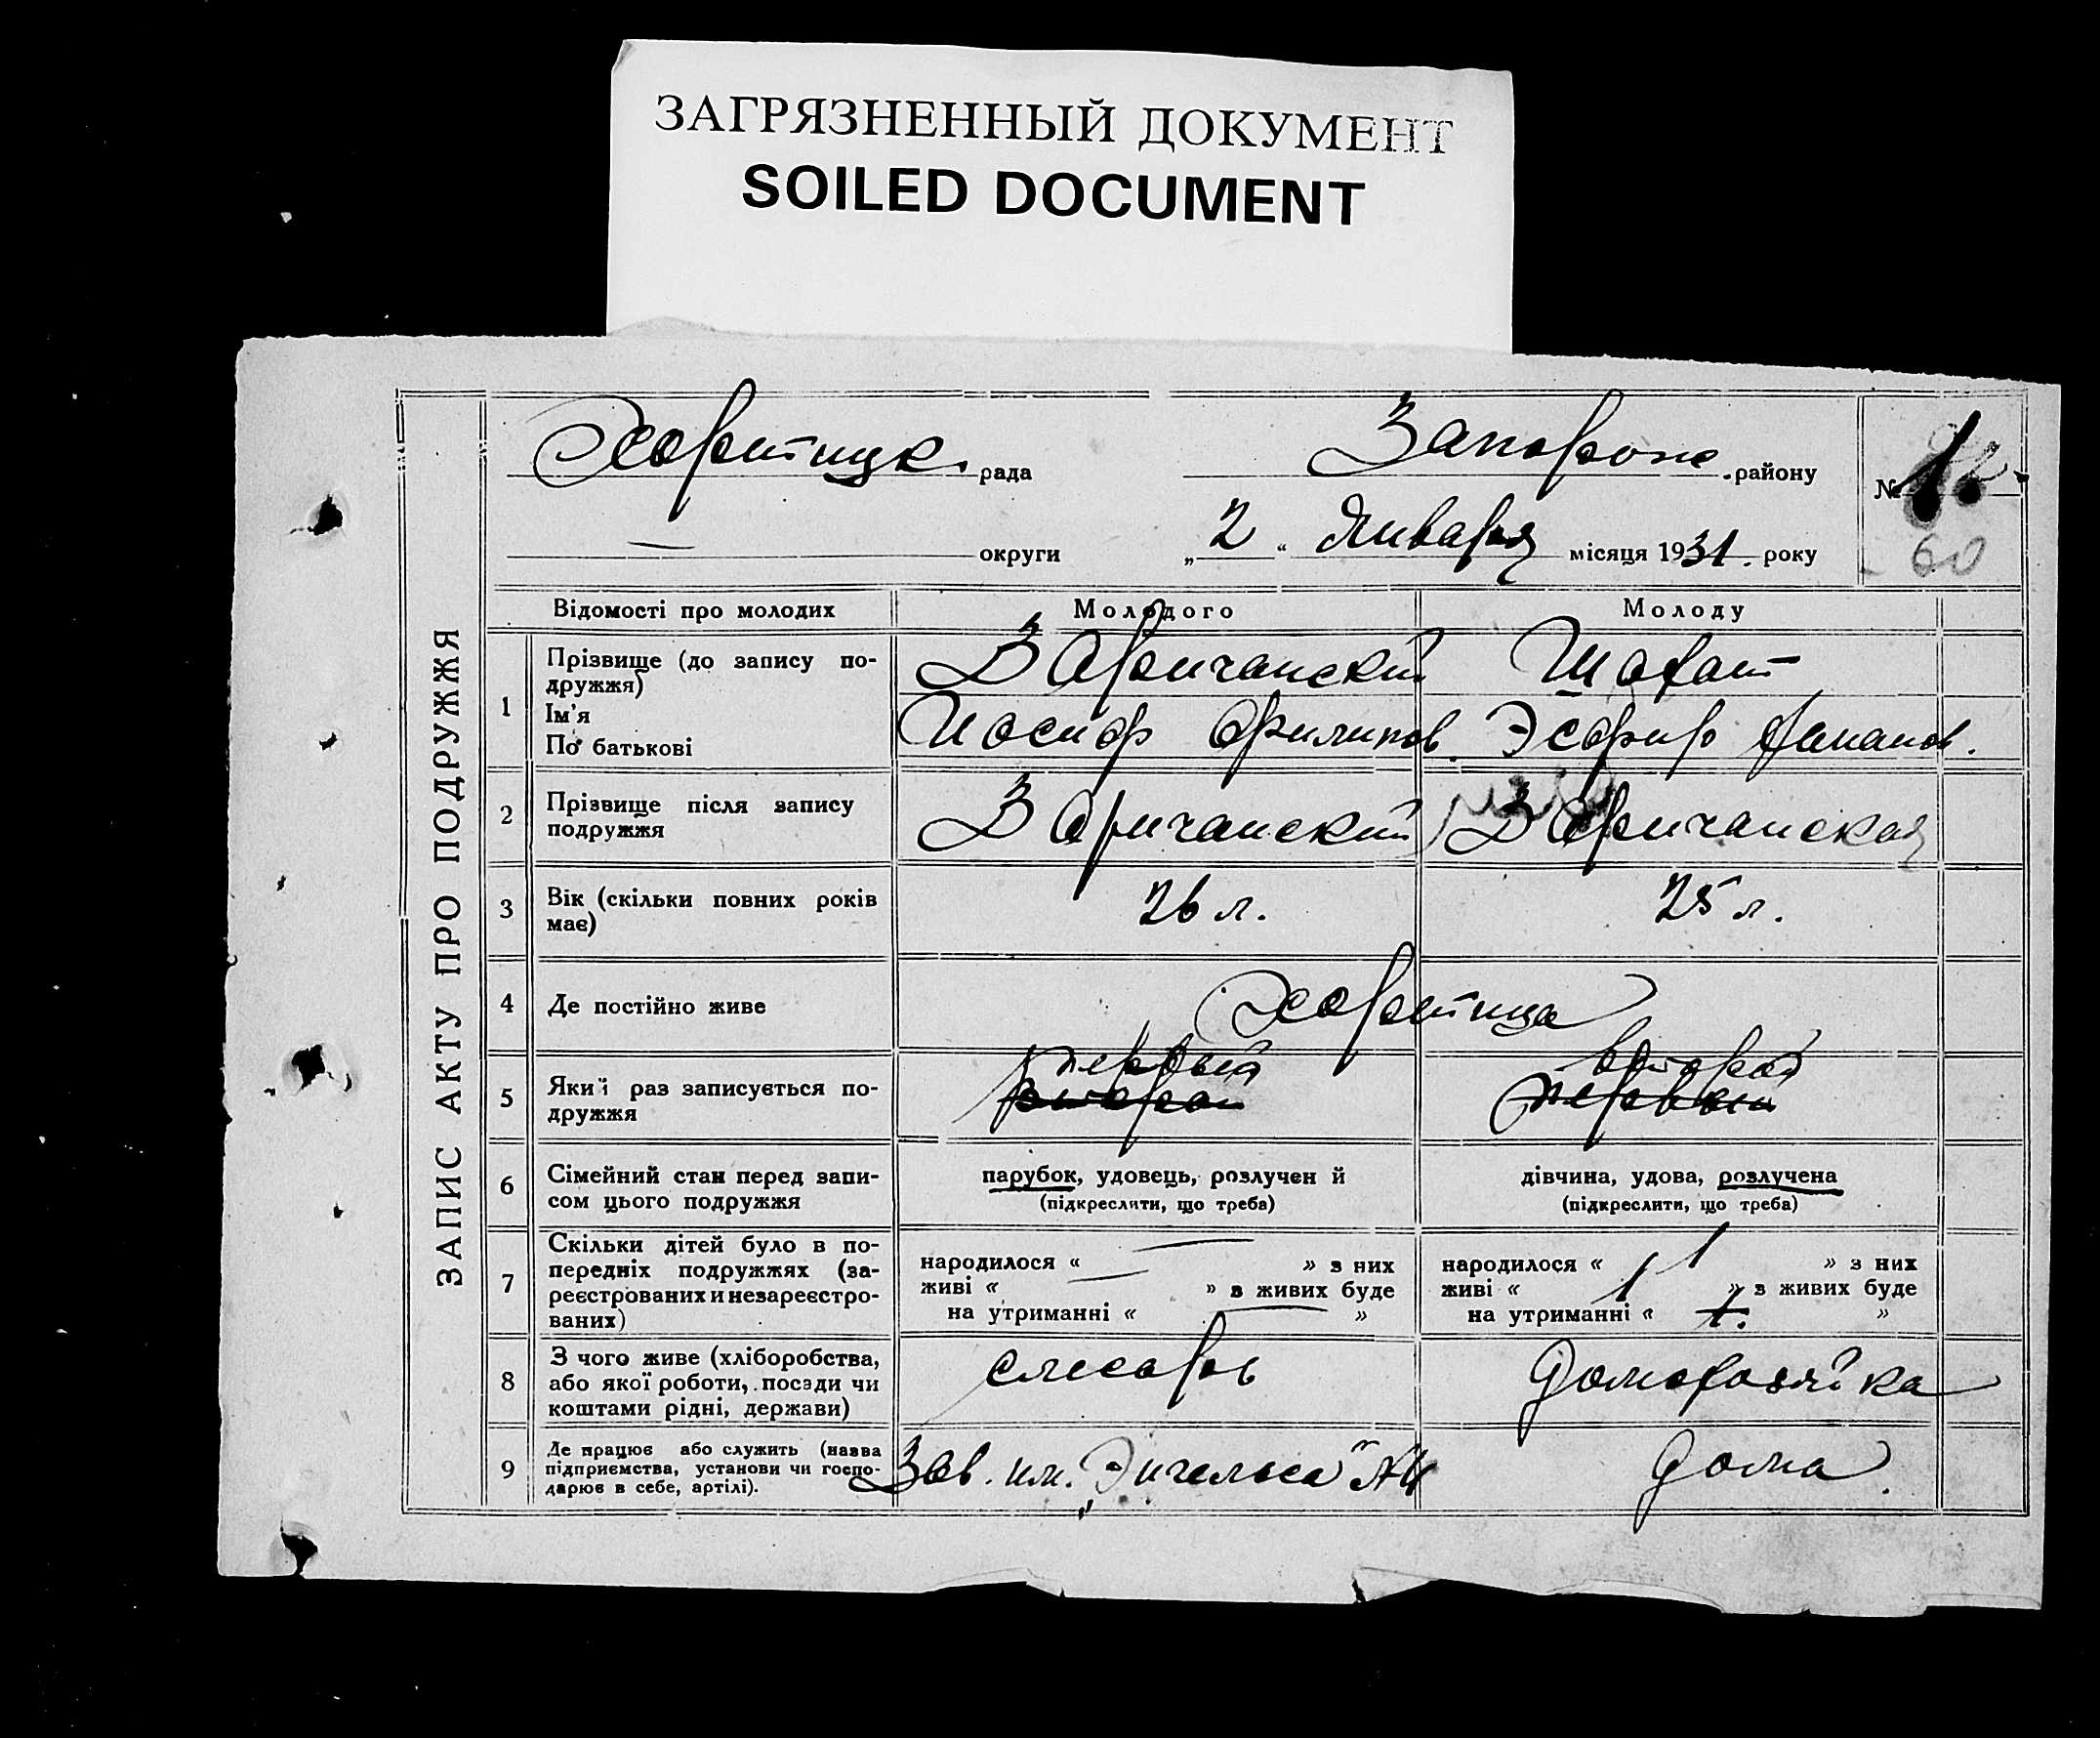 ЗАГРЯЗНЕННЫЙ ДОКУМЕНТ
SOILED DOCUMENT
Хортицк. рада Запорож. району
№ 1
— округи „2“ Января місяця 1931. року
60
ЗАПИС АКТУ ПРО ПОДРУЖЖЯ
Відомості про молодих Молодого Молоду
1 Прізвище (до запису по-
дружжя) Заричанский Шахат
Ім'я
По батькові Иосиф Филипов. Эсфирь
2 Прізвище після запису
подружжя Заричанский Заричанская
3 Вік (скільки повних років
має) 26 л. 25 л.
4 Де постійно живе Хортица
5 Який раз записується по-
дружжя первый второй
второй первый
6 Сімейний стан перед запи-
сом цього подружжя парубок, удовець, розлучен й дівчина, удова, розлучена
(підкреслити, що треба) (підкреслити, що треба)
7 Скільки дітей було в по-
передніх подружжях (за-
реєстрованих и незареєстро-
ваних)
народилося « — » з них народилося « 1 » з них
живі « — » з живих буде живі « 1 » з живих буде
на утриманні « — » на утриманні « 1. »
8 З чого живе (хліборобства,
або якої роботи, посади чи
коштами рідні, держави) слесарь домохозяйка
9 Де працює або служить (назва
підприємства, установи чи госпо-
дарює в себе, артілі). Зав. им. „Энгельса" №4 дома.